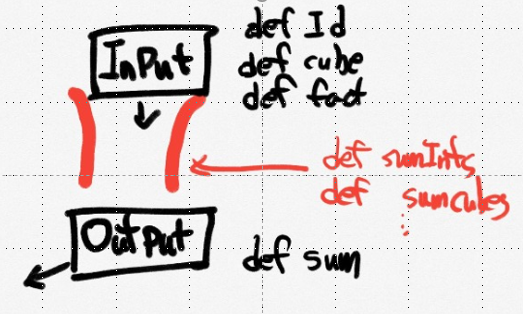 def Id
Input
def cube
def fact
def sumInts
def sumcubes
:
Output
def sum